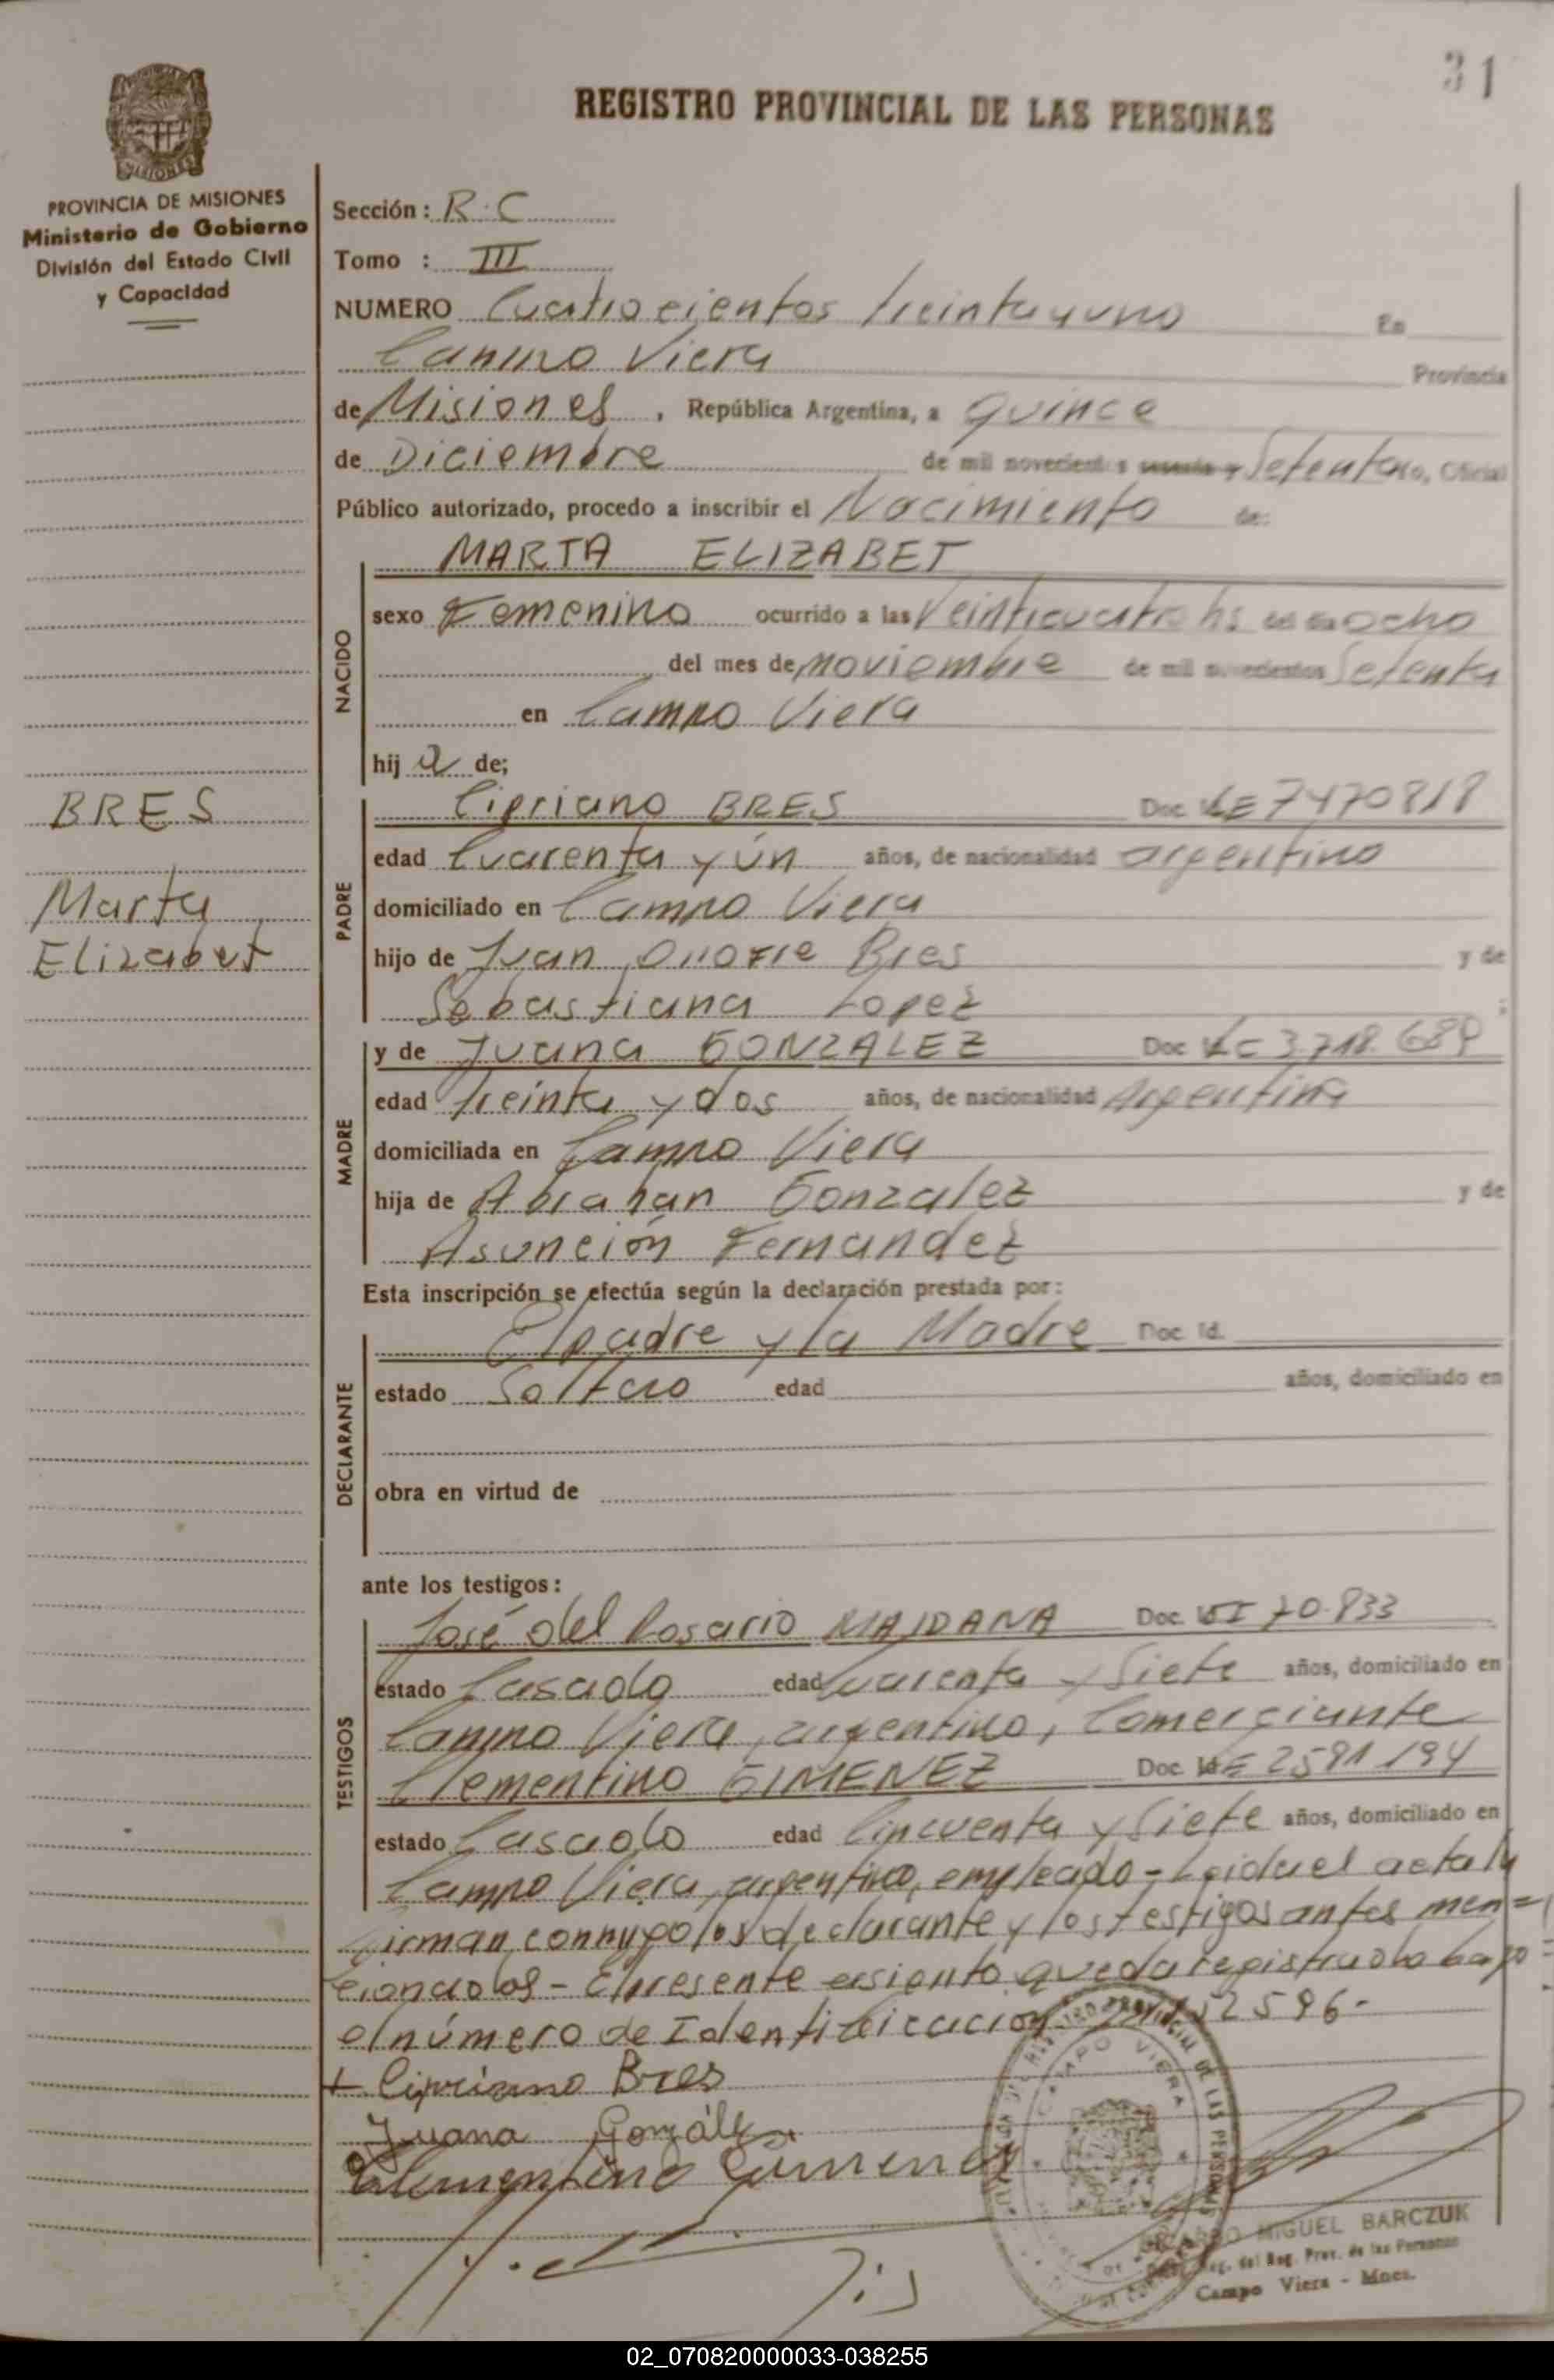 31
REGISTRO PROVINCIAL DE LAS PERSONAS
MISIONES
PROVINCIA DE MISIONES
Ministerio de Gobierno
División del Estado Civil
y Capacidad
Sección: R.C
Tomo : III
NUMERO Cuatrocientos treinta y uno En
Campo Viera Provincia
de Misiones, República Argentina, a quince
de Diciembre de mil novecientos sesenta y Setenta, Oficial
Público autorizado, procedo a inscribir el Nacimiento de:
NACIDO
MARTA ELIZABET
sexo Femenino ocurrido a las Veinticuatro hs ocho
del mes de noviembre de mil novecientos Setenta
en Campo Viera
hij a de;
BRES
Marta
Elizabet
PADRE
Cipriano BRES Doc. LE 7470818
edad Cuarenta y ún años, de nacionalidad argentino
domiciliado en Campo Viera
hijo de Juan Onofre Bres y de
Sebastiana Lopez
MADRE
y de Juana GONZALEZ Doc LC 3.718.689
edad treinta y dos años, de nacionalidad Argentina
domiciliada en Campo Viera
hija de Abrahan Gonzalez y de
Asunción Fernandez
Esta inscripción se efectúa según la declaración prestada por:
DECLARANTE
El padre y la Madre Doc. Id.
estado Soltero edad años, domiciliado en
obra en virtud de
ante los testigos:
TESTIGOS
José del Rosario MAIDANA Doc. CI 70.833
estado Casado edad Cuarenta y Siete años, domiciliado en
Campo Viera, argentino, Comerciante
Clementino GIMENEZ Doc. LE 2591194
estado Casado edad Cincuenta y Siete años, domiciliado en
Campo Viera, argentino, empleado - Leida el acta la
Firman conmigo los declarante y los testigos antes men=
cionados - El presente asiento queda registrado bajo =
el número de Identificación 2596-
+ Cipriano Bres
Juana Gonzálz
Clementino Gimenez
CAMPO VIERA
MIGUEL BARCZUK
del Reg. Prov. de las Personas
Campo Viera - Mnes.
02_070820000033-038255